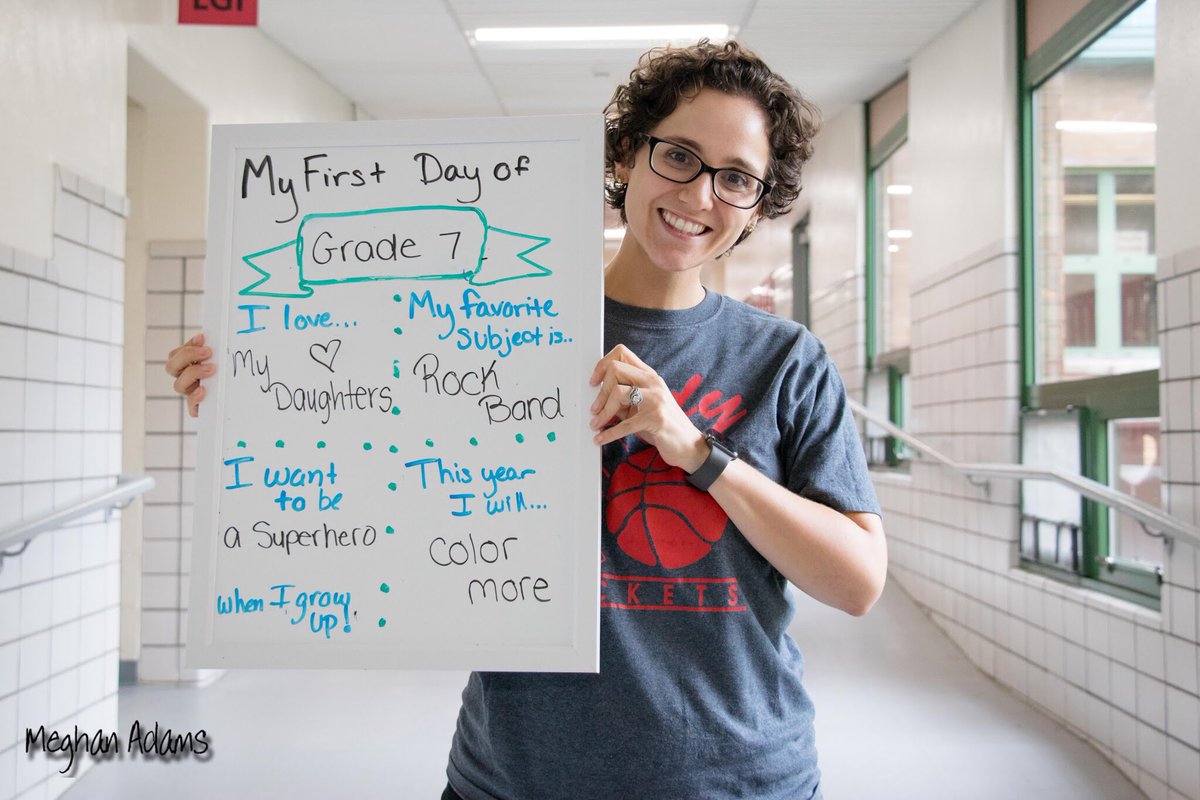 My First Day of
Grade 7
I love...
My
Daughters
My favorite
subject is..
Rock
Band
I want
to be
a Superhero
when I grow
up!
This year
I will...
color
more
Meghan Adams